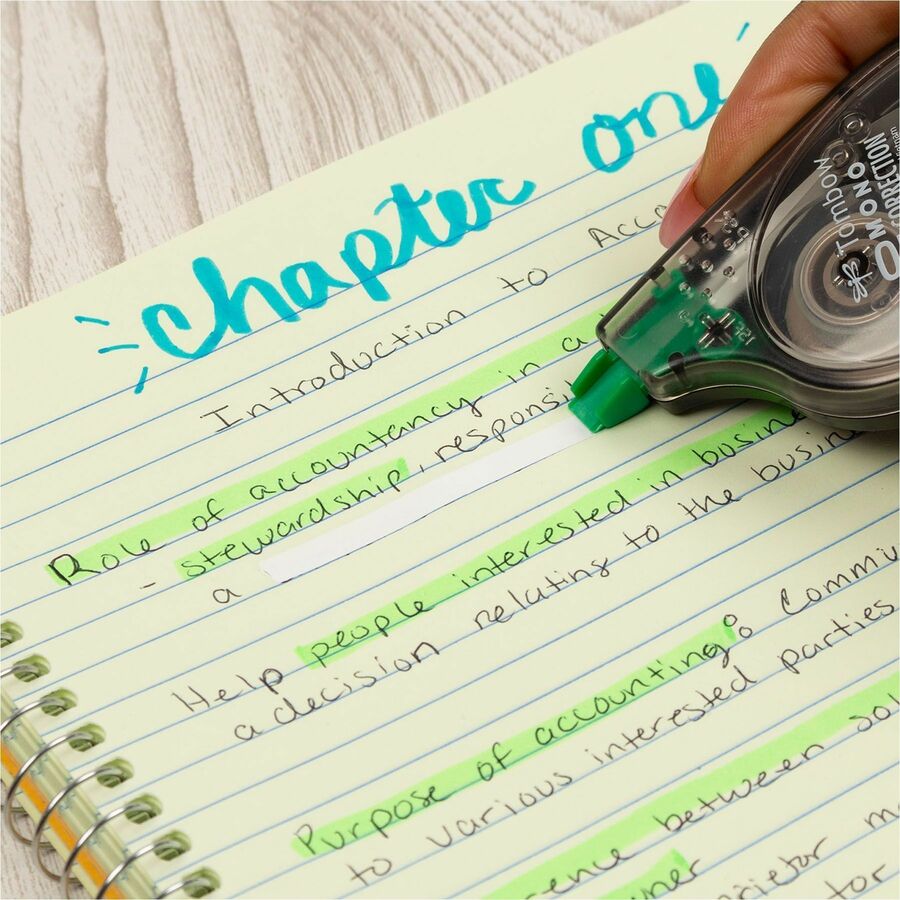 chapter one
Introduction to Acco
Role of accountancy in a
- stewardship, responsi
a
Help people interested in busine
a decision relating to the busin
Purpose of accounting: Commu
to various interested parties
rence between sol
ner
rietor m
tor
Tombow
MONO
CORRECTION